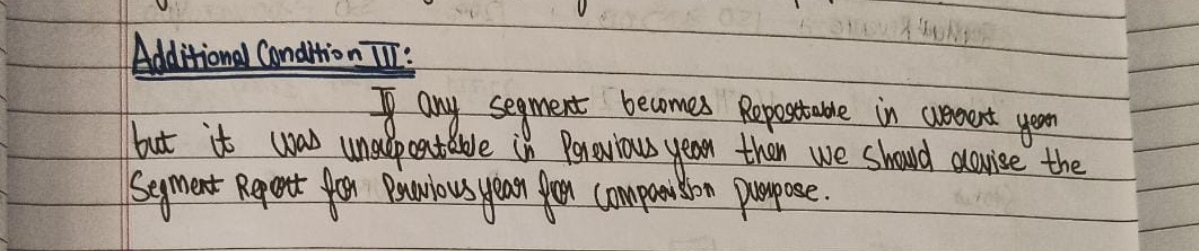 Additional Condition III:
If any segment becomes Reportable in current year
but it was unreportable in Previous year then we should revise the
Segment Report for Previous year for comparission purpose.